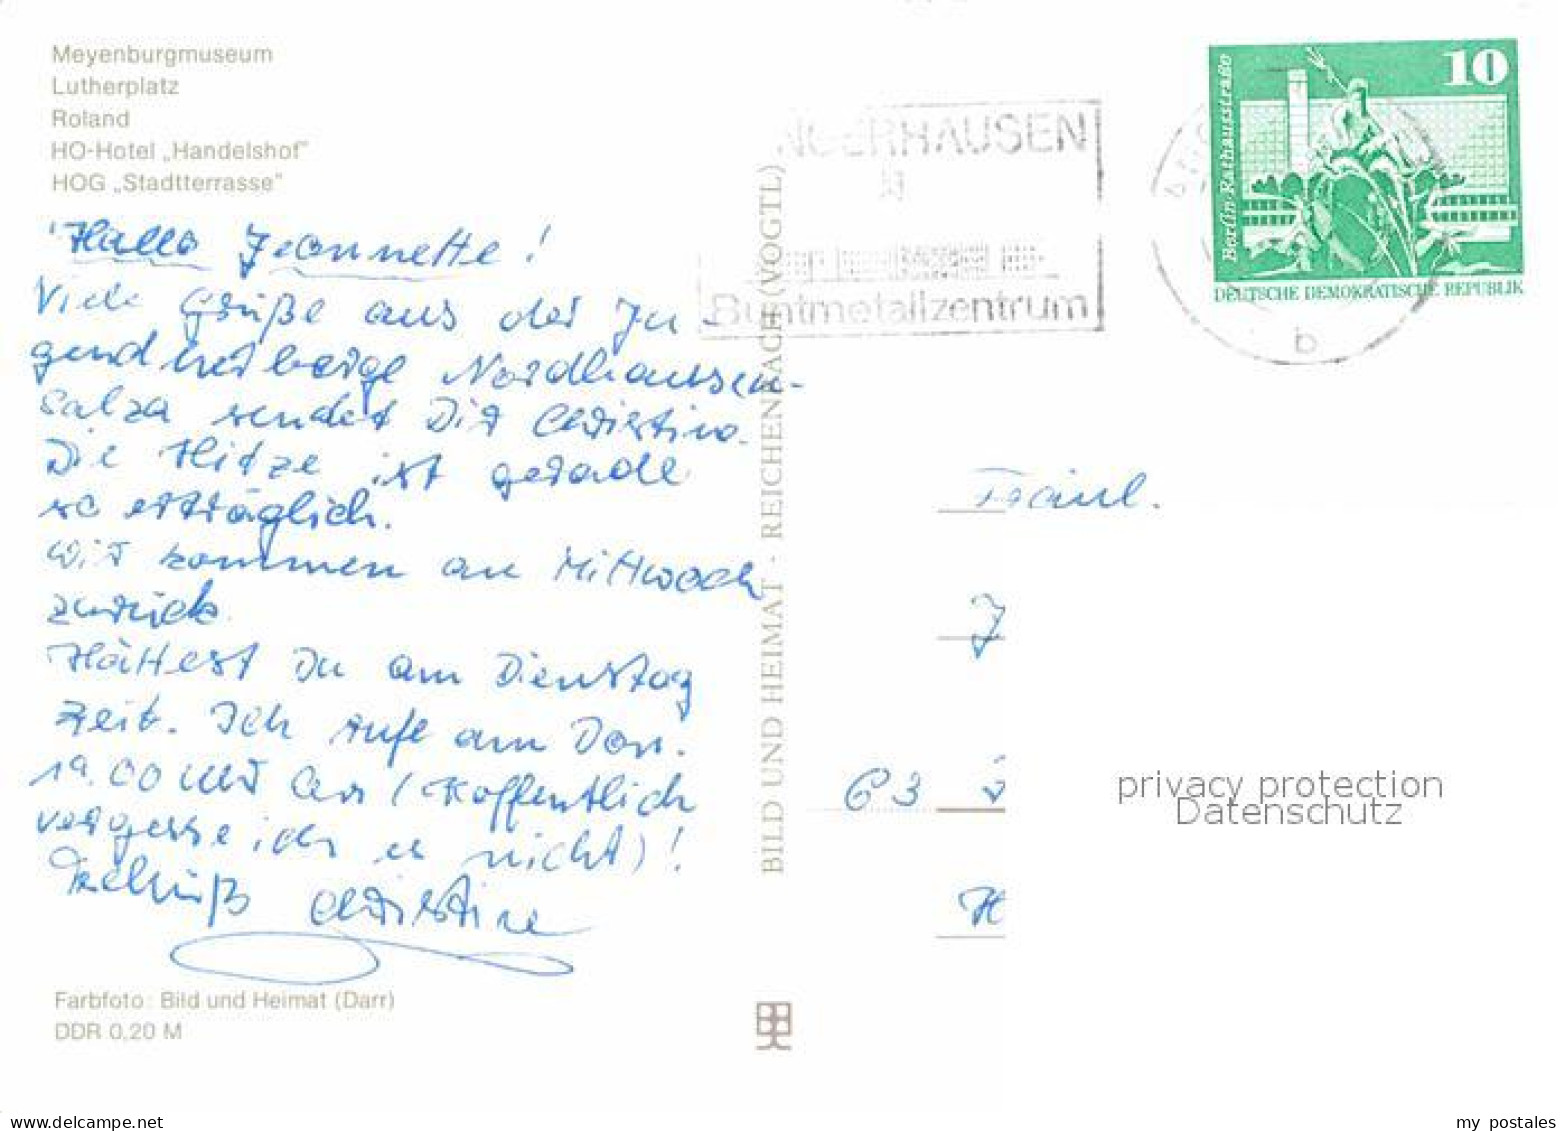 Meyenburgmuseum
Lutherplatz
Roland
HO-Hotel „Handelshof"
HOG „Stadtterrasse"
Hallo Jeannette!
Viele Grüße aus der Ju-
gendherberge Nordhausen-
Salza sendet Dir Christine.
Die Hitze ist gerade
so erträglich.
Wir kommen am Mittwoch
zurück.
Hättest Du am Dienstag
Zeit. Ich rufe am Don.
19.00 Uhr an (hoffentlich
vergesse ich es nicht)!
Tschüß Christine
Farbfoto: Bild und Heimat (Darr)
DDR 0,20 M
BILD UND HEIMAT · REICHENBACH (VOGTL)
NGERHAUSEN
Buntmetallzentrum
10
Berlin-Rathausstraße
DEUTSCHE DEMOKRATISCHE REPUBLIK
b
Fräul.
J
63
H
privacy protection
Datenschutz
my postales
www.delcampe.net